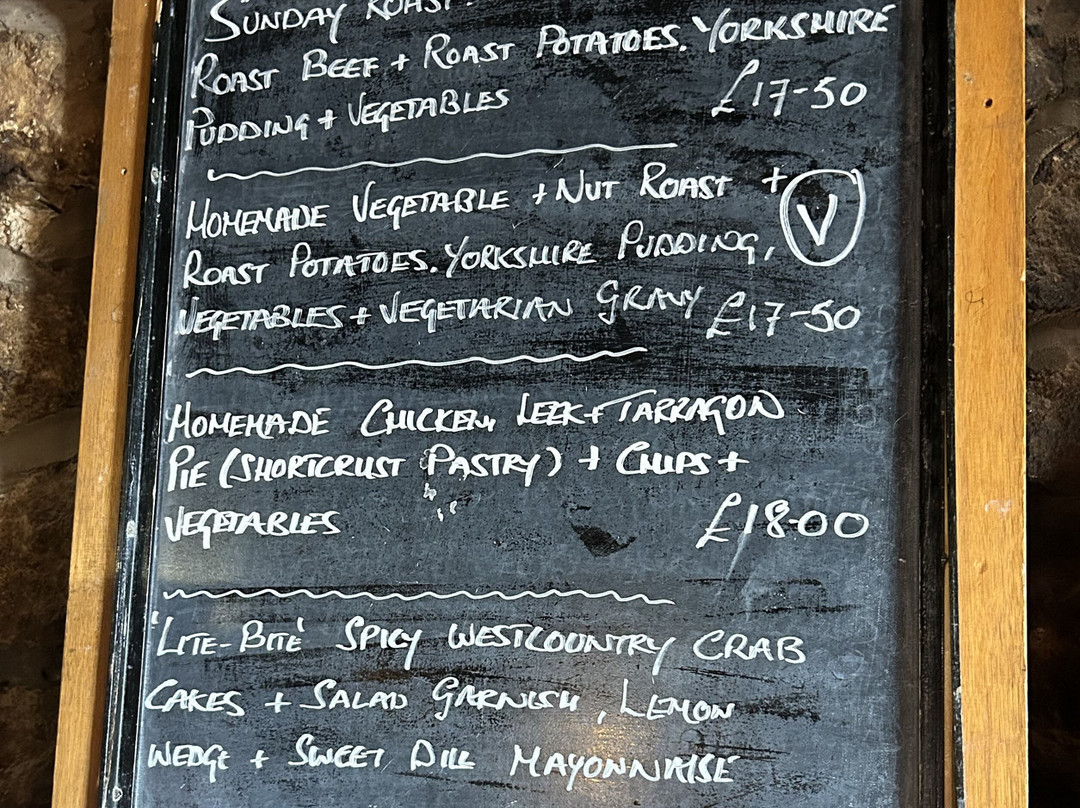 SUNDAY ROAST.
ROAST BEEF + ROAST POTATOES. YORKSHIRE
PUDDING + VEGETABLES £17-50
HOMEMADE VEGETABLE + NUT ROAST + V
ROAST POTATOES. YORKSHIRE PUDDING,
VEGETABLES + VEGETARIAN GRAVY £17-50
HOMEMADE CHICKEN, LEEK + TARRAGON
PIE (SHORTCRUST PASTRY) + CHIPS +
VEGETABLES £18-00
'LITE-BITE' SPICY WESTCOUNTRY CRAB
CAKES + SALAD GARNISH, LEMON
WEDGE + SWEET DILL MAYONNAISE